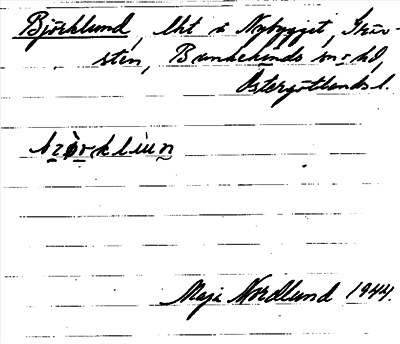 Björklund, lht i Nybygget, Skür-
sten, Bankekinds sn o hd,
Östergötlands l.
bzörkluun
Maja Nordlund 1944.